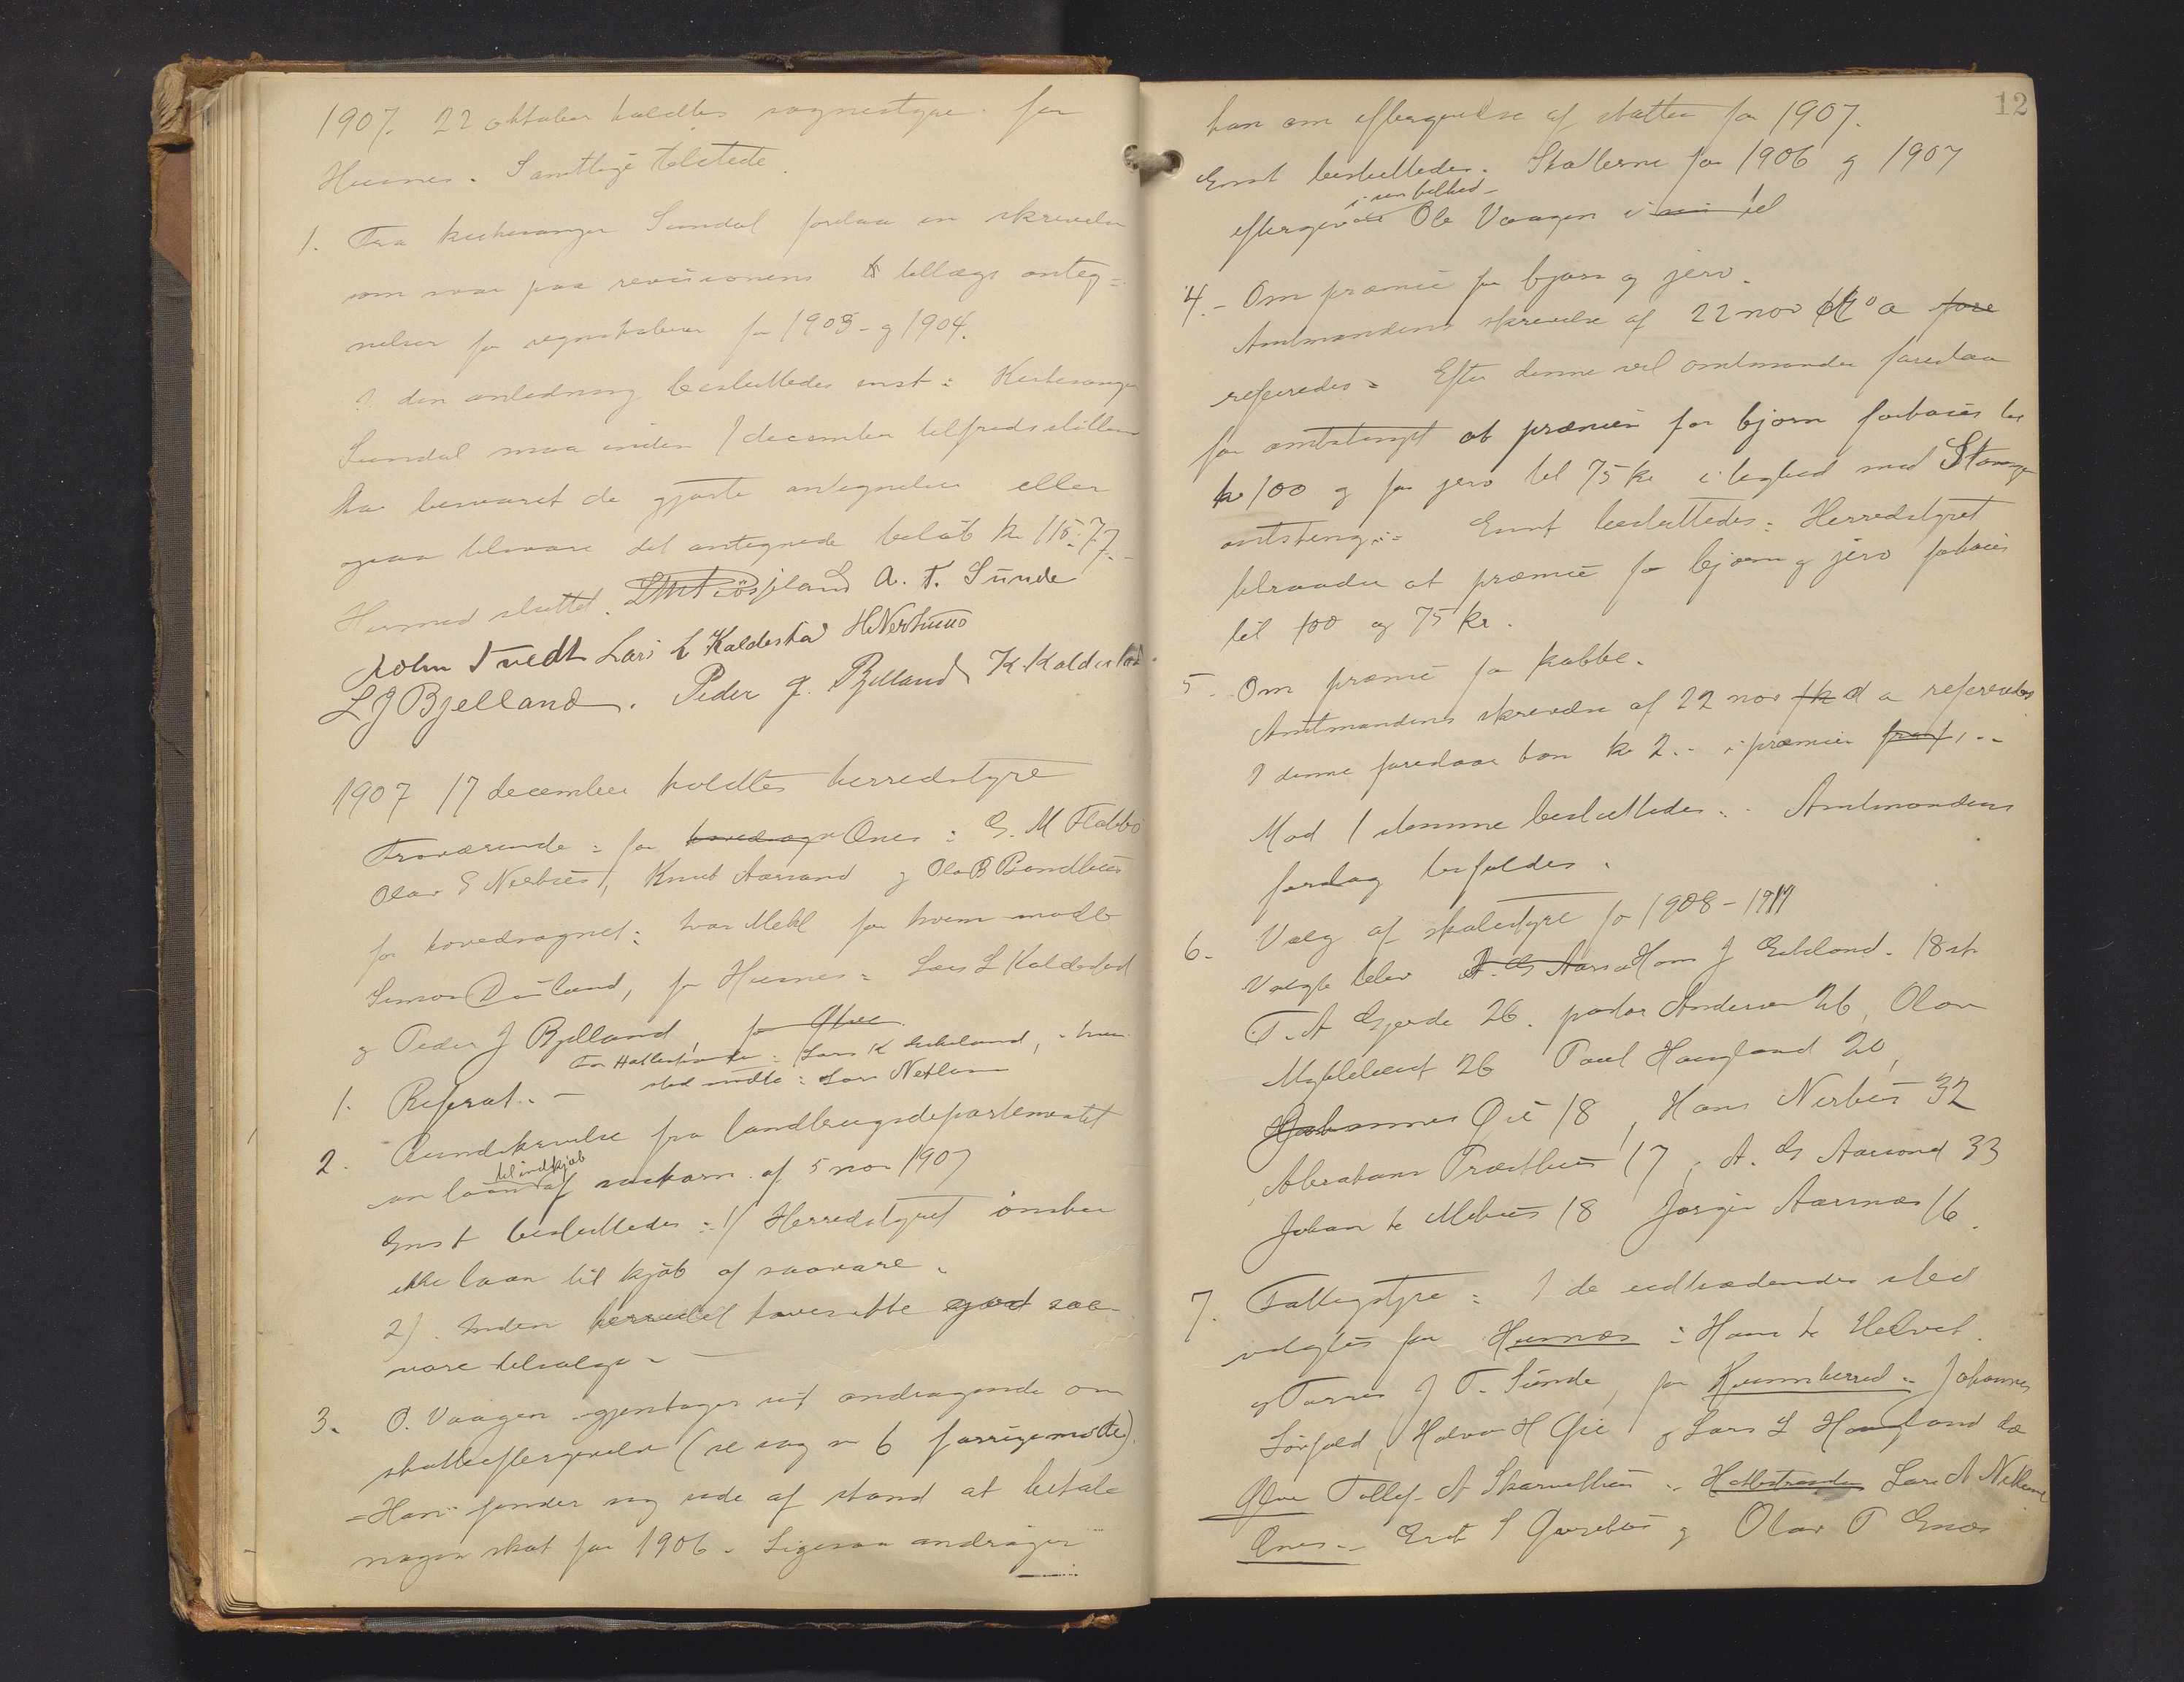 1907. 22 oktober holdtes sognestyre for
Husnes. Samtlige tilstede.
1. Fra kirkesanger Sundal forelaa en skrivelse
som svar paa revisionens tillægs anteg=
nelser for regnskaberne for 1903 - og 1904.
I den anledning besluttedes enst: Kirkesanger
Sundal maa inden 1 december tilfredsstillende
ha besvaret de gjorte antegnelser eller
ogsaa tilsvare det antegnede beløb kr 115.77.-
Hermed sluttet. A. T. Sunde
John Tvedt Lars L Kaldestad H. Nerhuus
L J Bjelland. Peder J. Bjelland K. Kaldestad.
1907 17 december holdtes herredstyre
Fraværende: for hovedsogn Ænes: G. M Flatebø
Olav E Neehus, Knut Aarsand og Ola B Bondhus
for hovedsognet: Ivar Mehl for hvem mødte
Simon Døsland, for Husnes: Lars L Kaldestad
og Peder J Bjelland, for Ølve
For Hatlestranden: Lars K Eikeland, i hvis
sted mødte: Lars Netland
1. Referat. -
2. Rundskrivelse fra landbrugsdepartementet
til indkjøb
om laan af saakorn af 5 nov 1907
Enst besluttedes: 1) Herredstyret ønsker
ikke laan til kjøb af saavare.
2). Inden herredet haves ikke god saa-
vare tilsalgs -
3. O. Vaagen gjentager sit andragende om
skatteeftergivelse (se sag nr 6 forrige møte).
Han finder sig ude af stand at betale
nogen skat for 1906. Ligesaa andrager
12
han om eftergivelse af skatten for 1907.
Enst besluttedes. Skatterne for 1906 og 1907
i sin helhed -
eftergives Ole Vaagen i sin hel
4. - Om præmie for bjørn og jerv.
Amtmandens skrivelse af 22 nov d a fore
refereredes. Efter denne vil amtmanden foreslaa
for amtstinget at præmien for bjørn forhøies til
kr 100 og for jerv til 75 kr i lighed med Stavanger
amtsting. Enst besluttedes: Herredstyret
tilraader at præmie for bjørn og jerv forhøies
til 100 og 75 kr.
5. Om præmie for kobbe.
Amtmandens skrivelse af 22 nov d a refereredes
I denne foreslaar han kr 2.- i præmie
Mod 1 stemme besluttedes: Amtmandens
forslag bifaldes.
6. Valg af skolestyre for 1908 - 1911
Valgte blev A. G Aarsa Hans J Eikeland. 18 st
T. A Gjerde 26. pastor Andersen 26, Olav
Myklebust 26 Paul Haugland 20,
Johannes Øie 18, Hans Nerhus 32
Abraham Træthus 17, A. G Aarsand 33
Johan Mehus 18 Jørgen Aarsnes 16.
7. Fattigstyre: I de udtrædendes sted
valgtes for Husnes: Hans Helvik.
og Tørres J T. Sunde, for Kvinnherred: Johannes
Sørfold, Halvor H Øie og Lars L Haugland
Ølve Tollef A Skarvethun.. Hatlestranden Lars A Netland
Ænes - Erik S Gurebø og Olav T Ænes